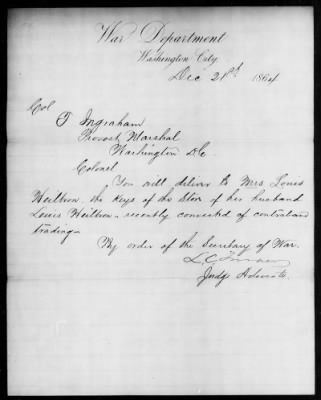 War Department
Washington City
Dec 21st 1864
Col
T Ingraham
Provost Marshal
Washington DC
Colonel
You will deliver to Mrs Louis
the keys of the Store of her husband
Louis recently convicted of contraband
trading
By order of the Secretary of War.
L C Turner
Judge Advocate